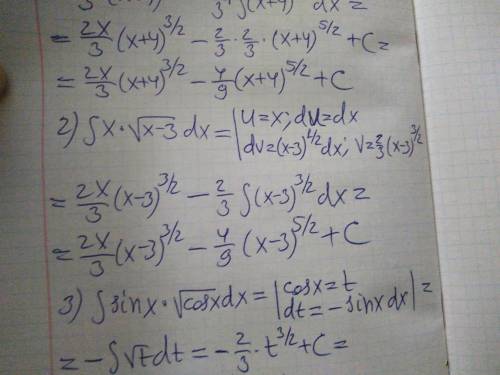 = 2x/3 (x+4)^3/2 - 2/3 · 2/3 · (x+4)^5/2 + C =
= 2x/3 (x+4)^3/2 - 4/9 (x+4)^5/2 + C
2) ∫x·√(x-3) dx = | u=x; du=dx
dv=(x-3)^1/2 dx; v=2/3 (x-3)^3/2
= 2x/3 (x-3)^3/2 - 2/3 ∫(x-3)^3/2 dx =
= 2x/3 (x-3)^3/2 - 4/9 (x-3)^5/2 + C
3) ∫sinx·√cosx dx = | cosx=t
dt=-sinx dx | =
= -∫√t dt = -2/3 · t^3/2 + C =